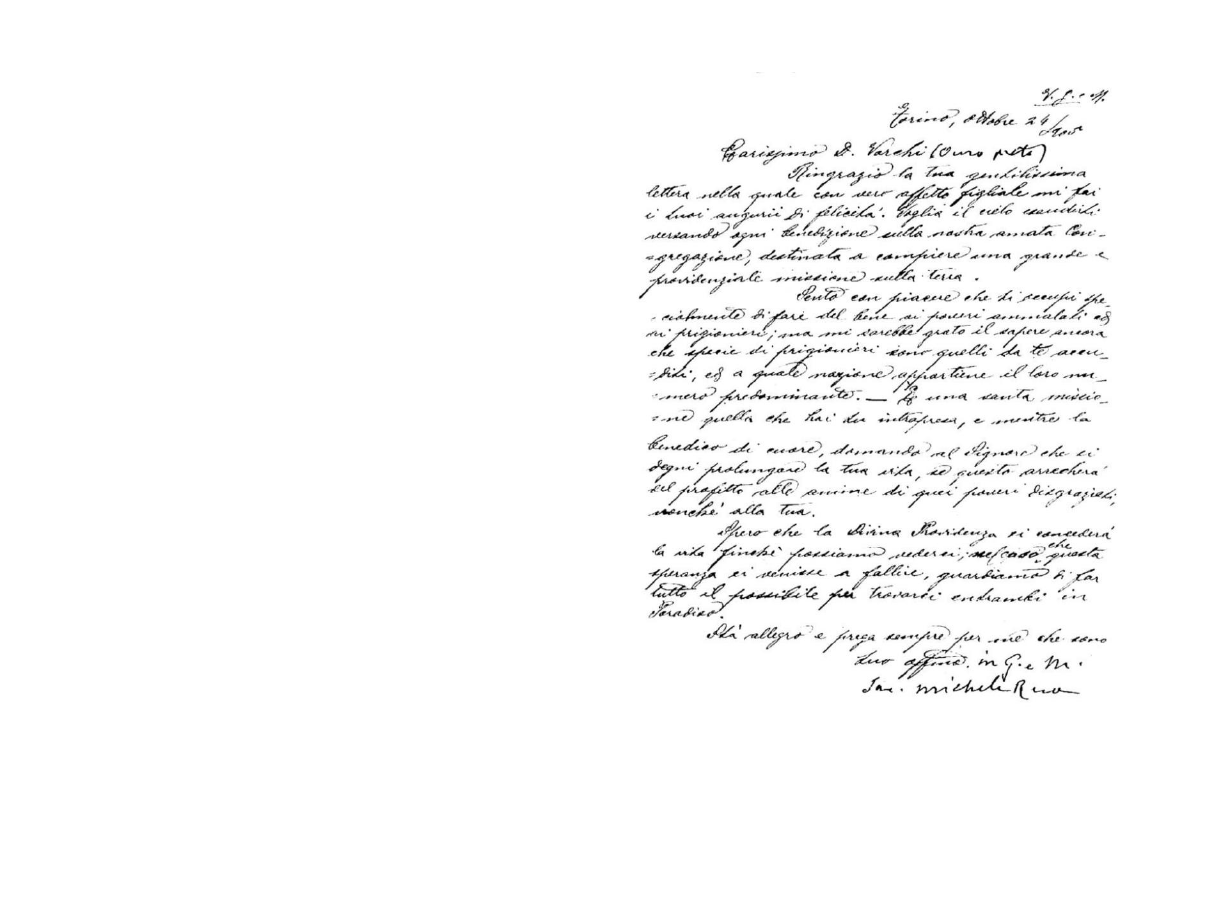 V. G. e M.
Torino, ottobre 24/905
Carissimo D. Varchi (Ouro preto)
Ringrazio la tua gentilissima
lettera nella quale con vero affetto figliale mi fai
i tuoi augurii di felicità. Voglia il cielo esaudirti
versando ogni benedizione sulla nostra amata Con-
=gregazione, destinata a compiere una grande e
providenziale missione sulla terra.
Sento con piacere che ti occupi spe-
=cialmente di fare del bene ai poveri ammalati ed
ai prigionieri; ma mi sarebbe grato il sapere ancora
che specie di prigionieri sono quelli da te accu-
=diti, ed a quale nazione appartiene il loro nu-
=mero predominante. — È una santa missio-
=ne quella che hai tu intrapresa, e mentre la
benedico di cuore, domando al Signore che si
degni prolungare la tua vita, se questo arrecherà
del profitto alle anime di quei poveri disgraziati,
nonchè alla tua.
Spero che la Divina Providenza ci concederà
la vita finchè possiamo vederci; nel caso che questa
speranza ci venisse a fallire, guardiamo di far
tutto il possibile per trovarci entrambi in
Paradiso.
Stà allegro e prega sempre per me che sono
tuo affmo. in G. e M.
Sac. Michele Rua